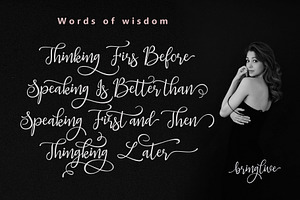 Words of wisdom
Thinking Firs Before
Speaking Is Better than
Speaking First and Then
Thingking Later
bringlive